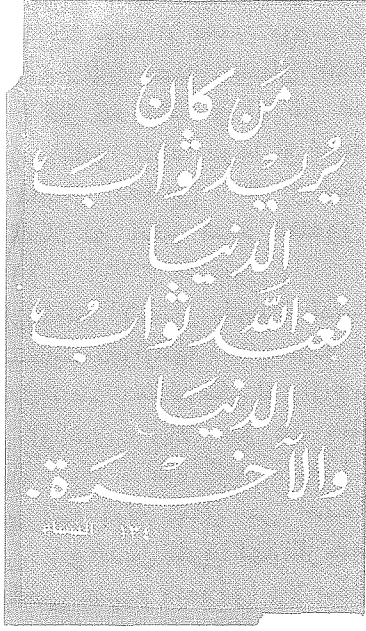 مَن كَانَ
يُرِيد ثَوابَ
الدنيَا
فعِند اللَّه ثَوابُ
الدنيَا
والآخِرَة.
١٣٤ النساء